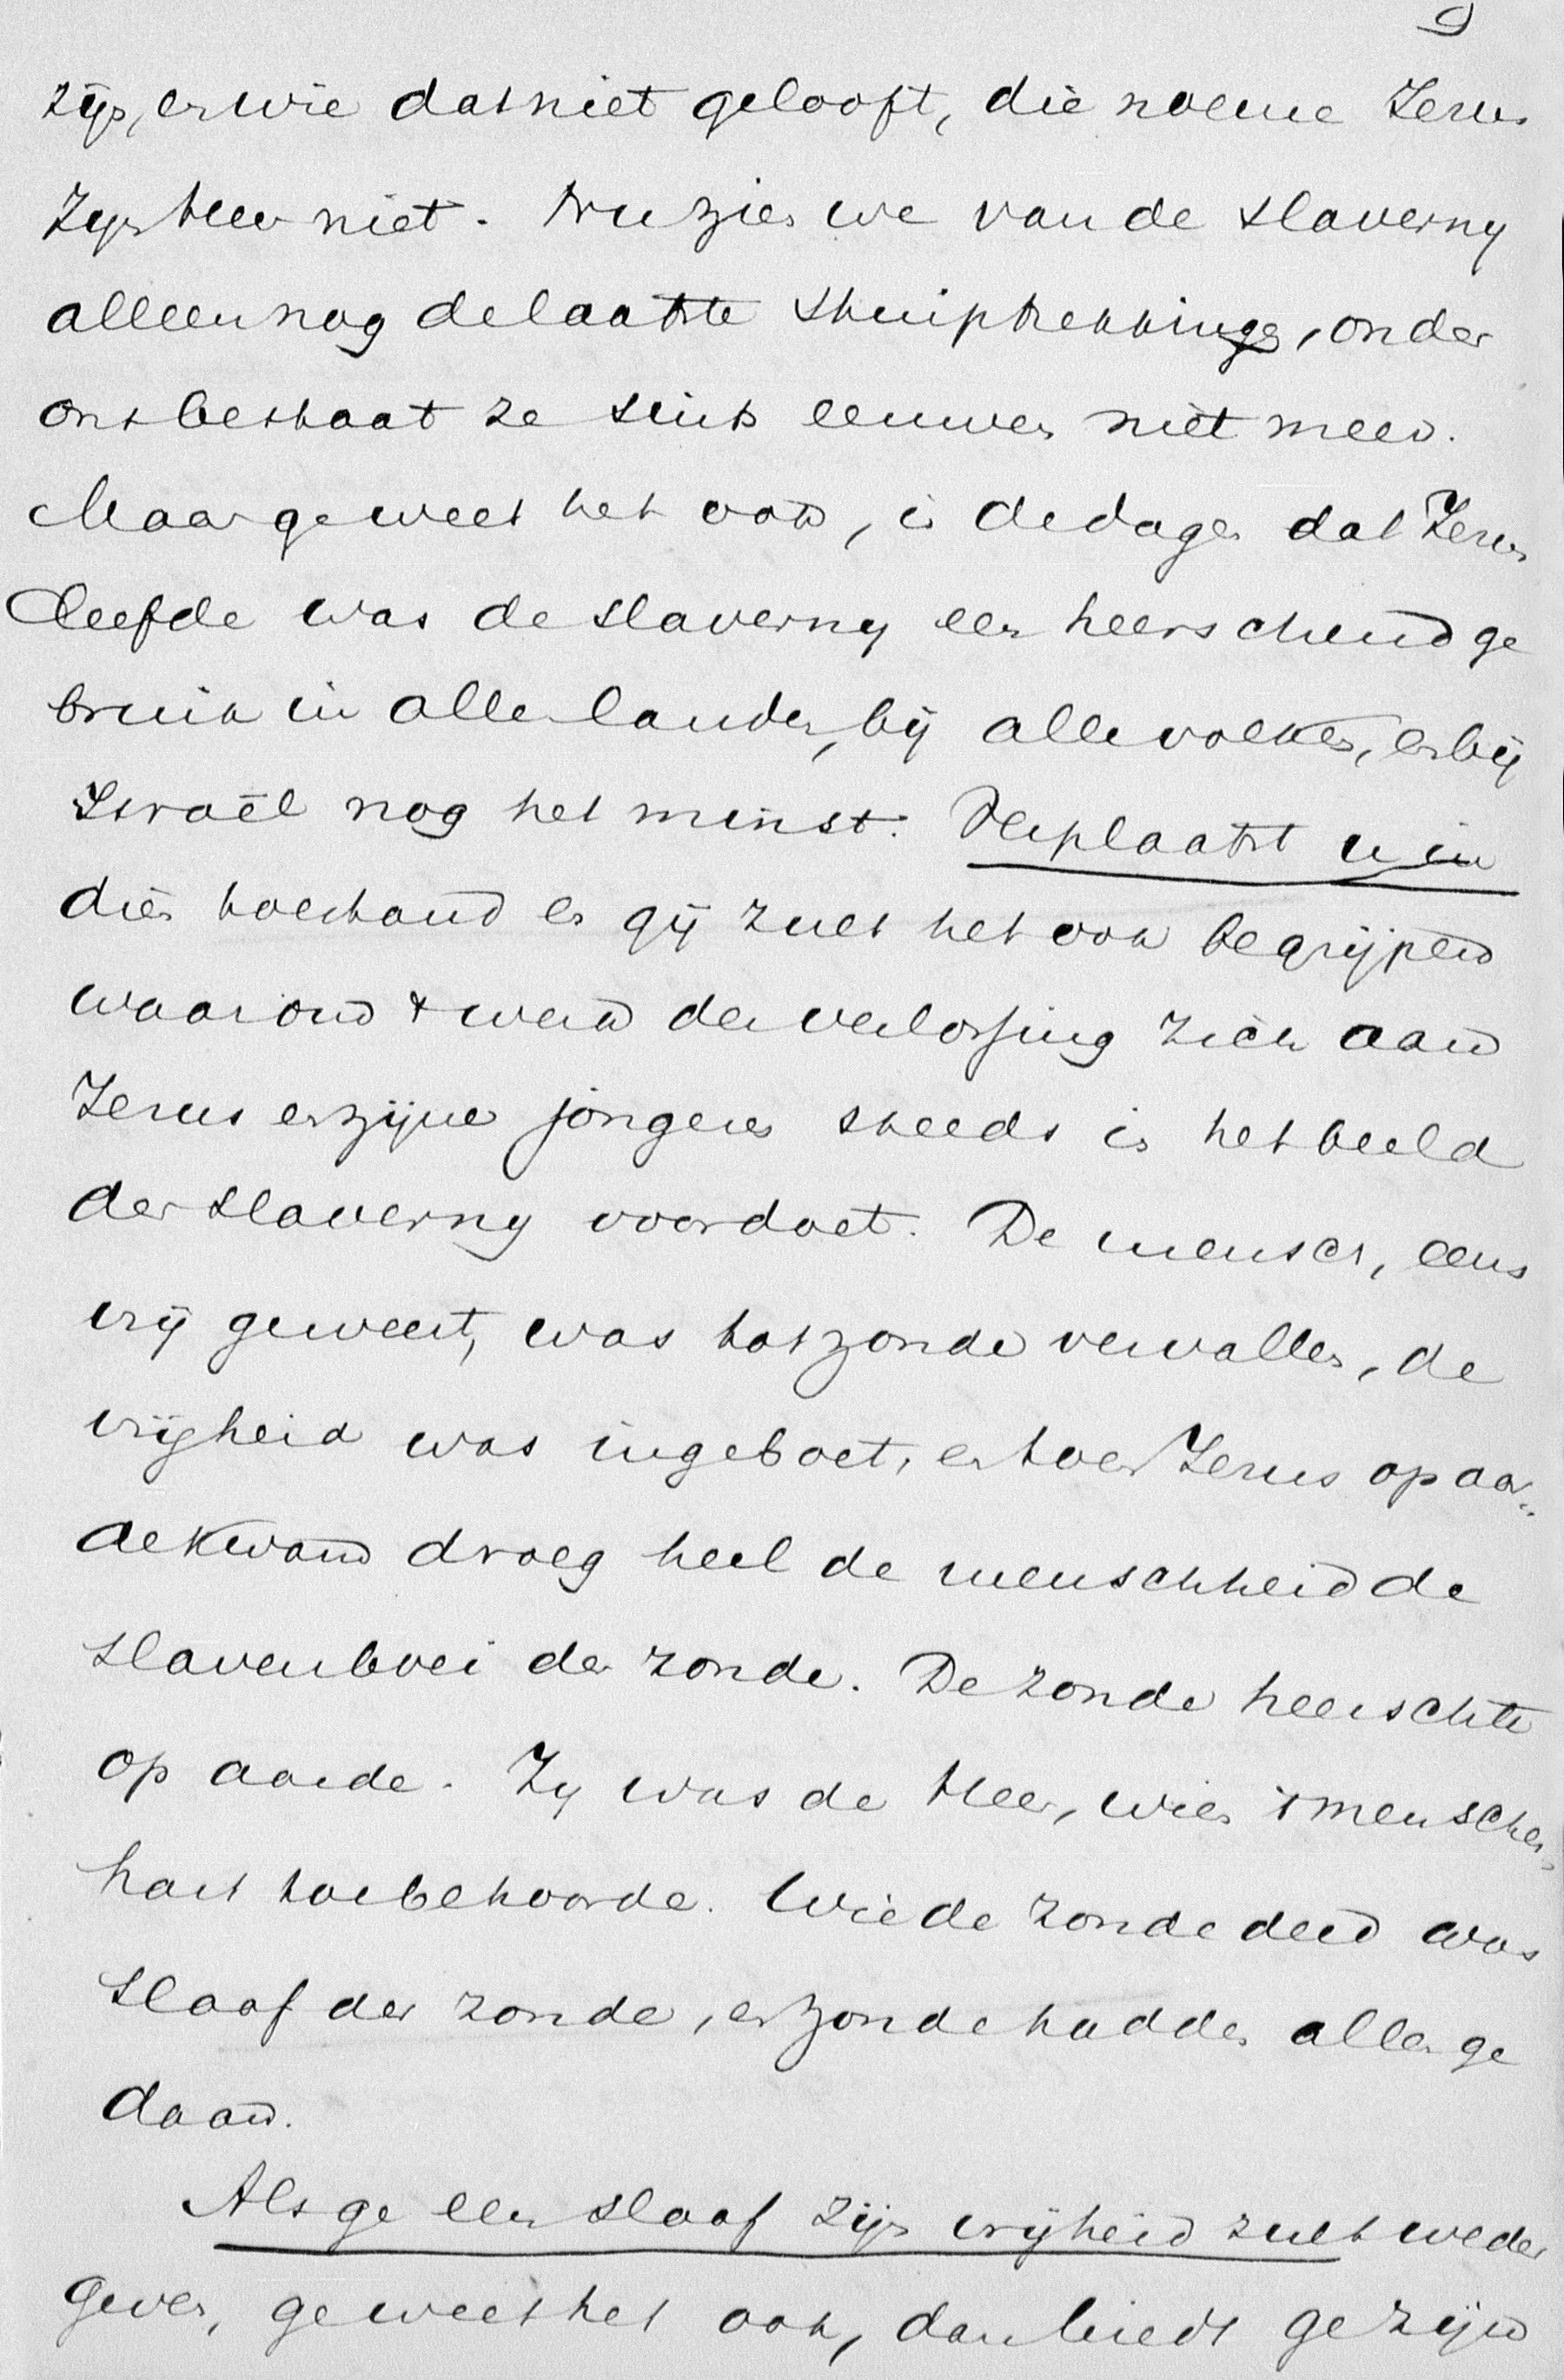 9
zijn, en wie dat niet gelooft, die noeme Jezus
zijn Heer niet. Nu zien we van de slaverny
alleen nog de laatste stuiptrekkingen, onder
ons bestaat ze sinds eeuwen niet meer.
Maar ge weet het ook, in de dagen dat Jezus
leefde was de slaverny een heerschend ge
bruik in alle landen, bij alle volken, en bij
Israël nog het minst. Verplaatst u in
dien toestand en gij zult het ook begrijpen
waarom 't werk der verlossing zich aan
Jezus en zijne jongeren steeds in het beeld
der slaverny voordoet. De mensch, eens
vrij geweest, was tot zonde vervallen, de
vrijheid was ingeboet, en toen Jezus op aar„
de kwam droeg heel de menschheid de
slavenboei der zonde. De zonde heerschte
op aarde. Zy was de Heer, wien 's menschen„
hart toebehoorde. Wie de zonde deed was
slaaf der zonde, en zonde hadden allen ge
daan.
Als ge een slaaf zijn vrijheid zult weder
geven, ge weet het ook, dan biedt ge zijn